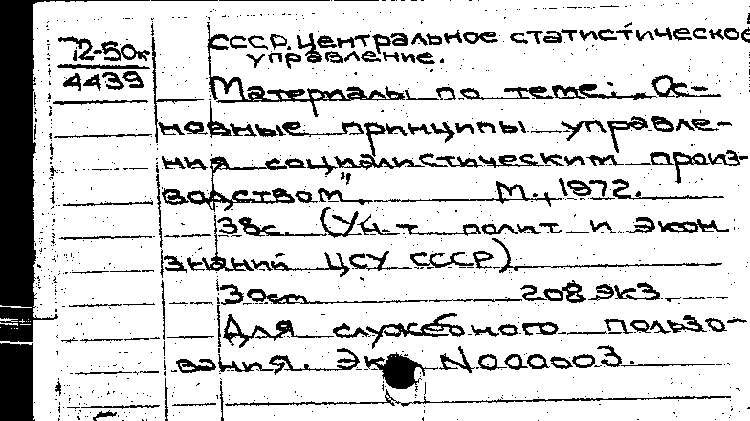 72-50к
4439
СССР. Центральное статистическое
управление.
Материалы по теме: „Ос-
новные принципы управле-
ния социалистическим произ-
водством". М., 1972.
38с. (Ун-т полит и экон
знаний ЦСУ СССР).
208 экз.
Для служебного пользо-
вания. Экз N000003.